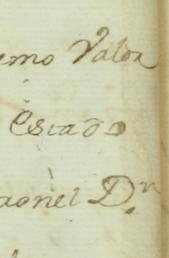 emo Valor
Estado
ronel Dn